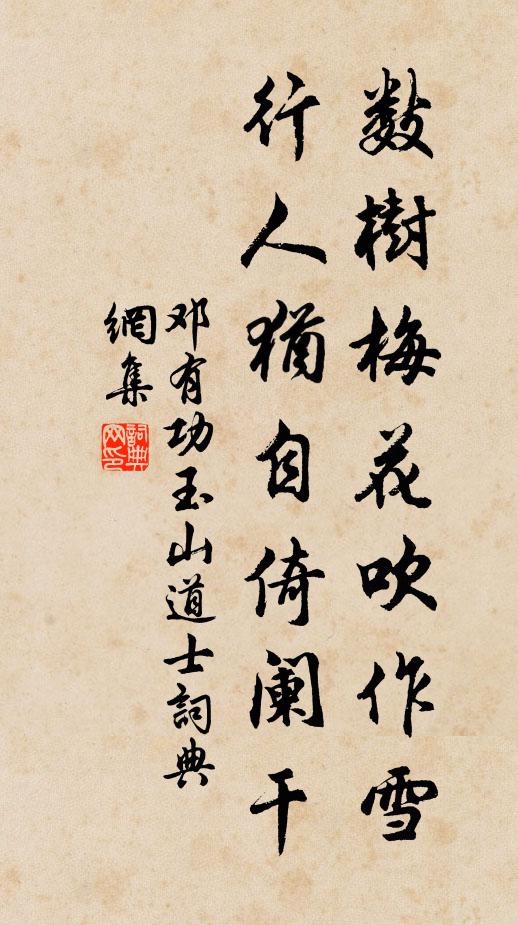 數樹梅花吹作雪
行人猶自倚阑干
邓有功玉山道士詞典
網集
詞典
网印